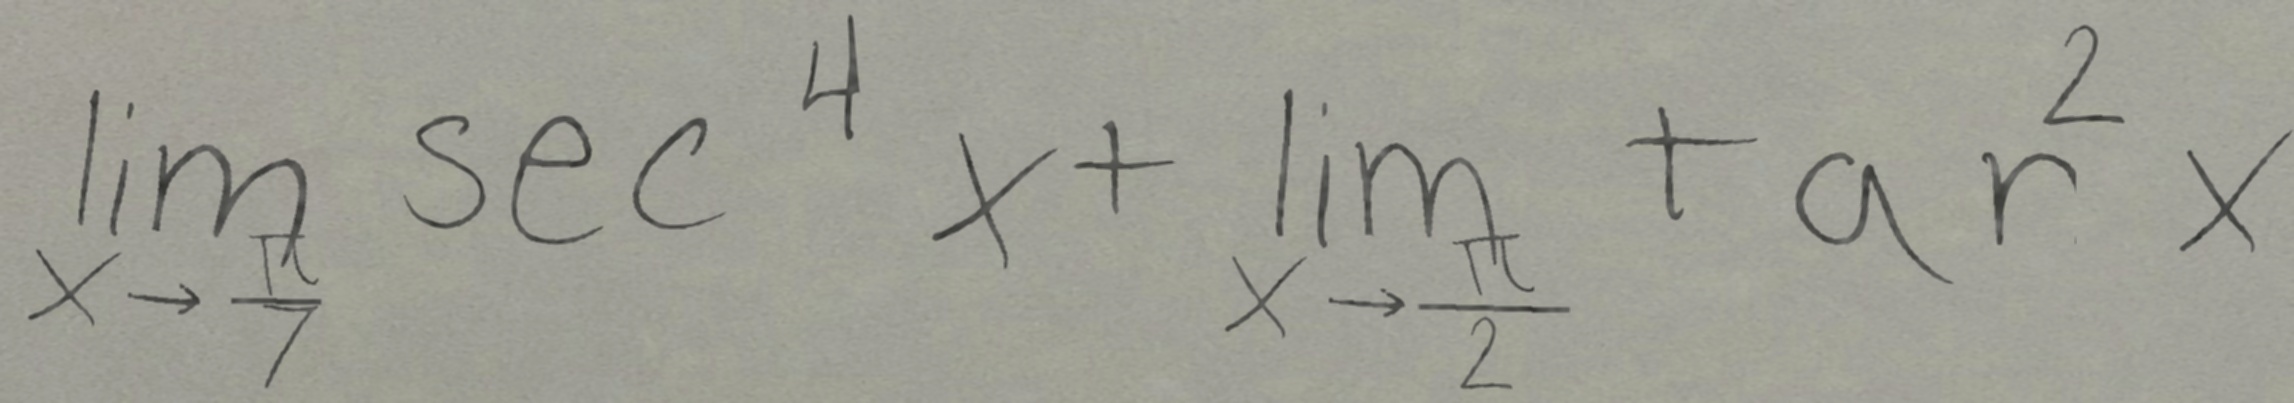 \lim_{x \to \frac{\pi}{7}} \sec^4 x + \lim_{x \to \frac{\pi}{2}} \tan^2 x